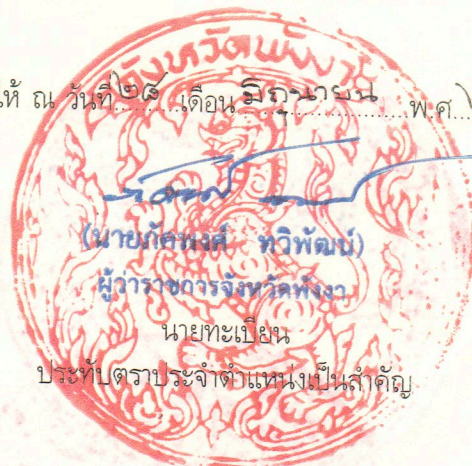 จังหวัดพังงา
ให้ ณ วันที่ ๒๘ เดือน มิถุนายน พ.ศ.
(นายภัคพงศ์ ทวิพัฒน์)
ผู้ว่าราชการจังหวัดพังงา
นายทะเบียน
ประทับตราประจำตำแหน่งเป็นสำคัญ